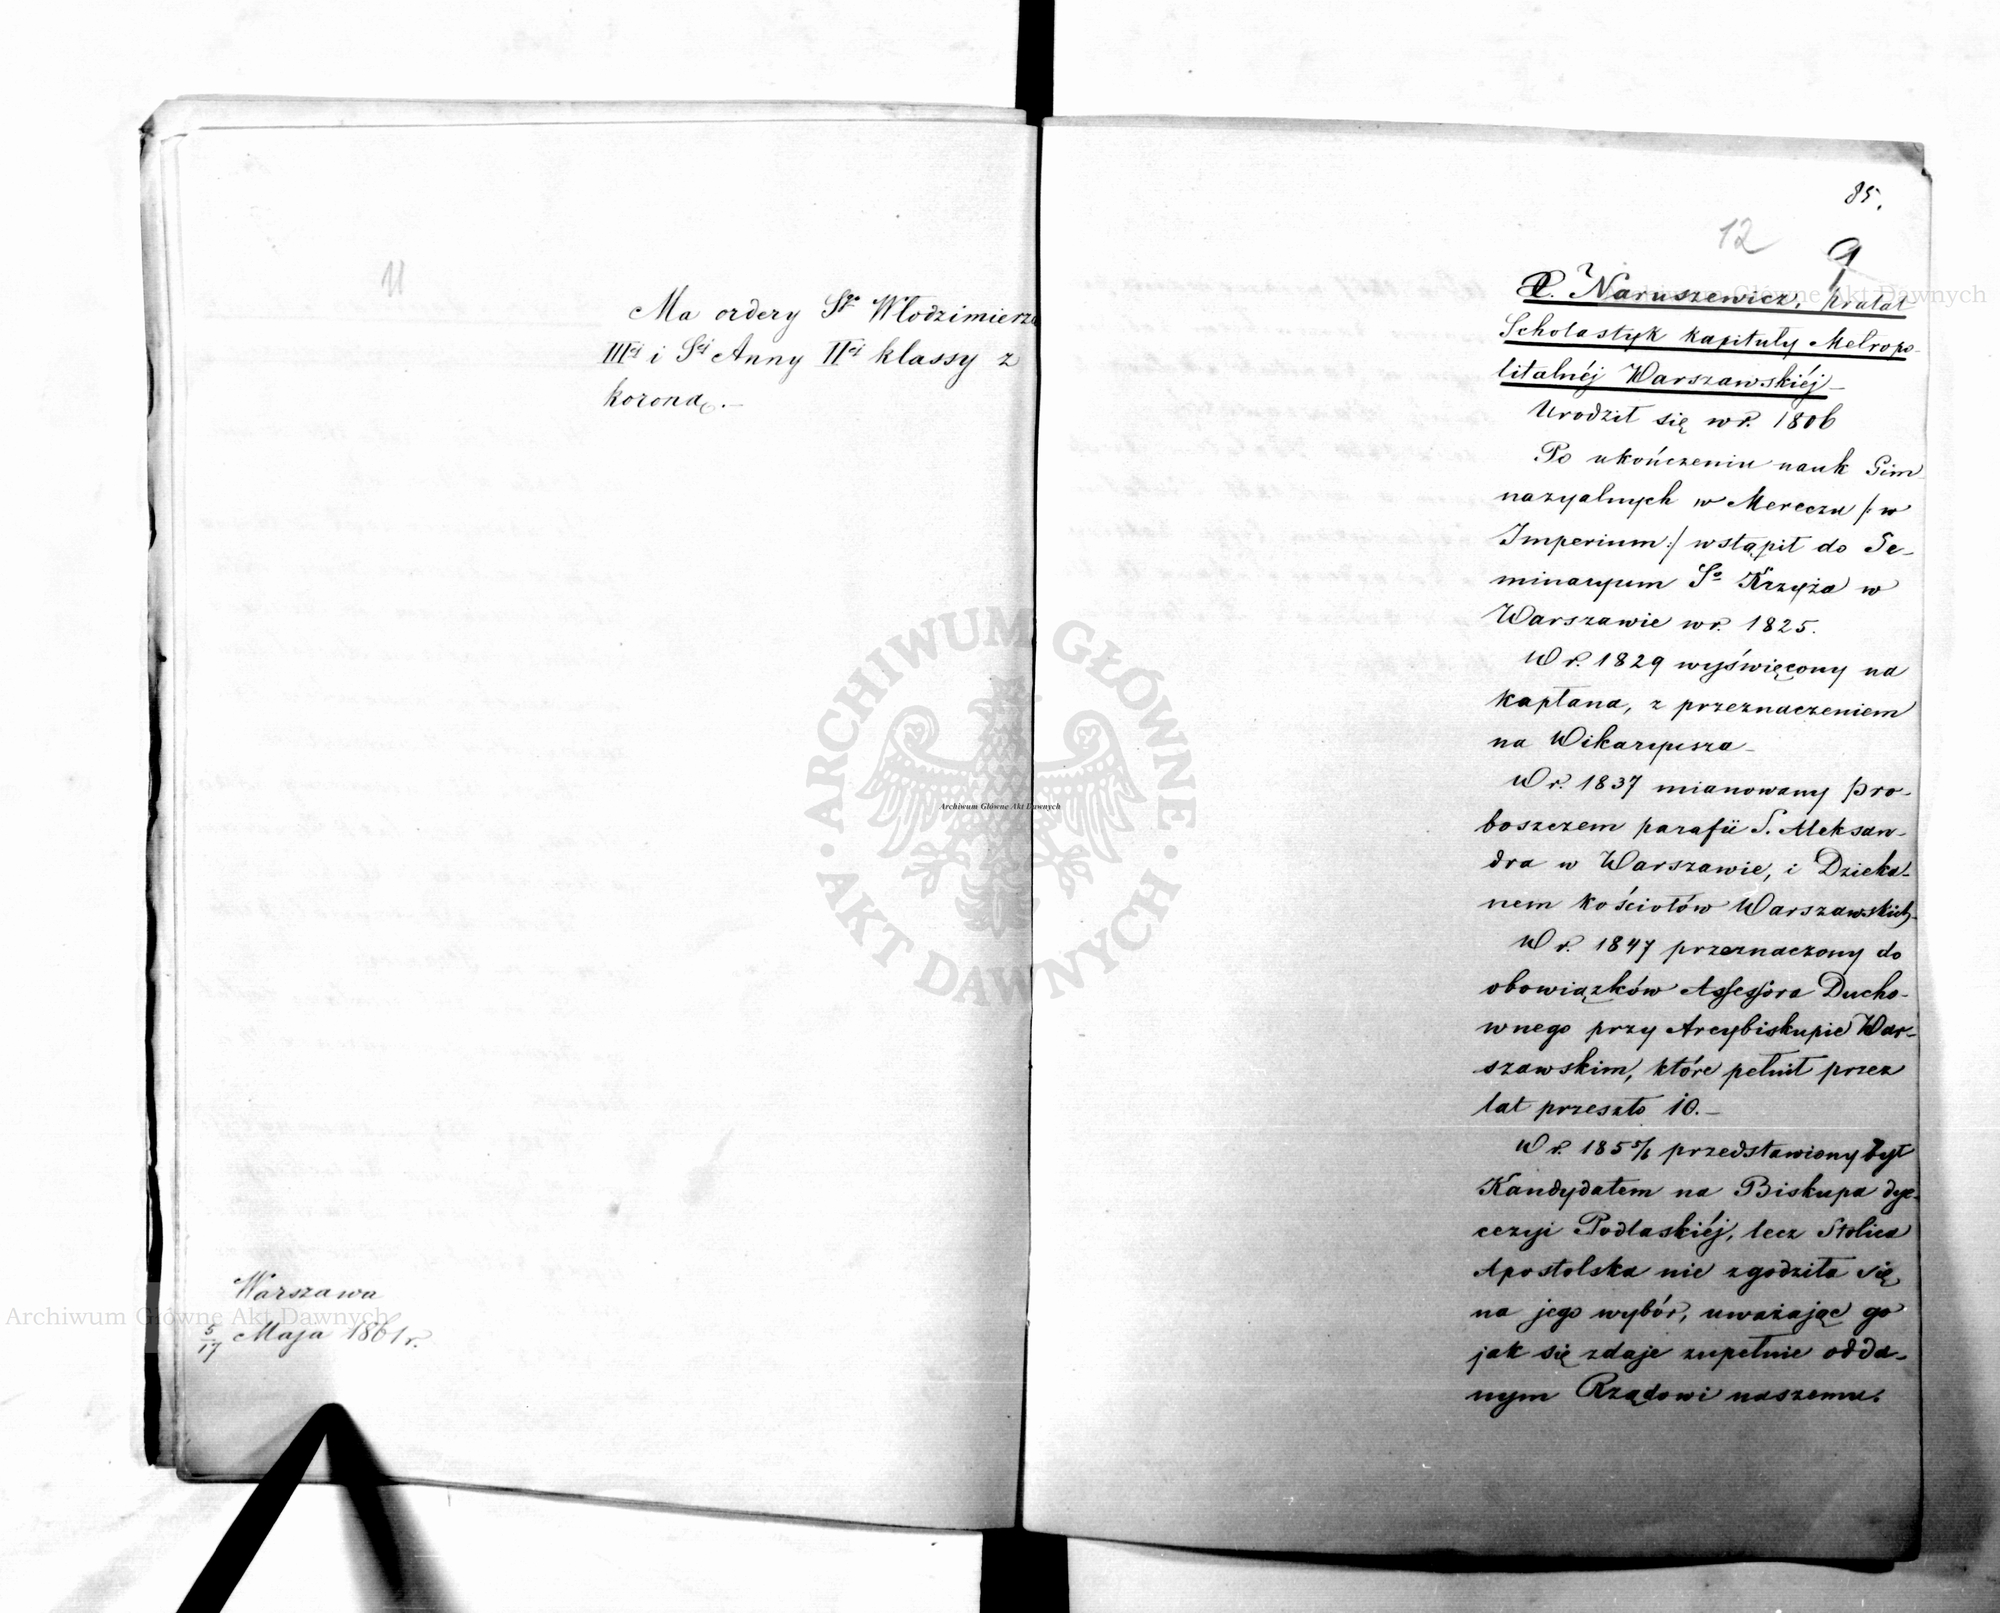 11
Ma ordery Sgo Włodzimierza
IIIej i Sej Anny IIej klassy z
koroną.—
Warszawa
5/17 Maja 1861 r.
85.
12
9
X. Naruszewicz, prałat
Scholastyk kapituły Metropo-
litalnéj Warszawskiéj—
Urodził się w r. 1806
Po ukończeniu nauk Gim
nazyalnych w Mereczu /: w
Imperium :/ wstąpił do Se-
minaryum So Krzyża w
Warszawie w r. 1825.
W r. 1829 wyświęcony na
kapłana, z przeznaczeniem
na Wikaryusza—
W r. 1837 mianowany pro-
boszczem parafii S. Aleksan-
dra w Warszawie, i Dzieka-
nem kościołów Warszawskich—
W r. 1847 przeznaczony do
obowiązków Assessora Ducho-
wnego przy Arcybiskupie War-
szawskim, które pełnił przez
lat przeszło 10.—
W r. 1855/6 przedstawiony był
Kandydatem na Biskupa dye-
cezyi Podlaskiéj, lecz Stolica
Apostolska nie zgodziła się
na jego wybór, uważając go
jak się zdaje zupełnie odda-
nym Rządowi naszemu.
ARCHIWUM GŁÓWNE
AKT DAWNYCH
Archiwum Główne Akt Dawnych
Archiwum Główne Akt Dawnych
Archiwum Główne Akt Dawnych